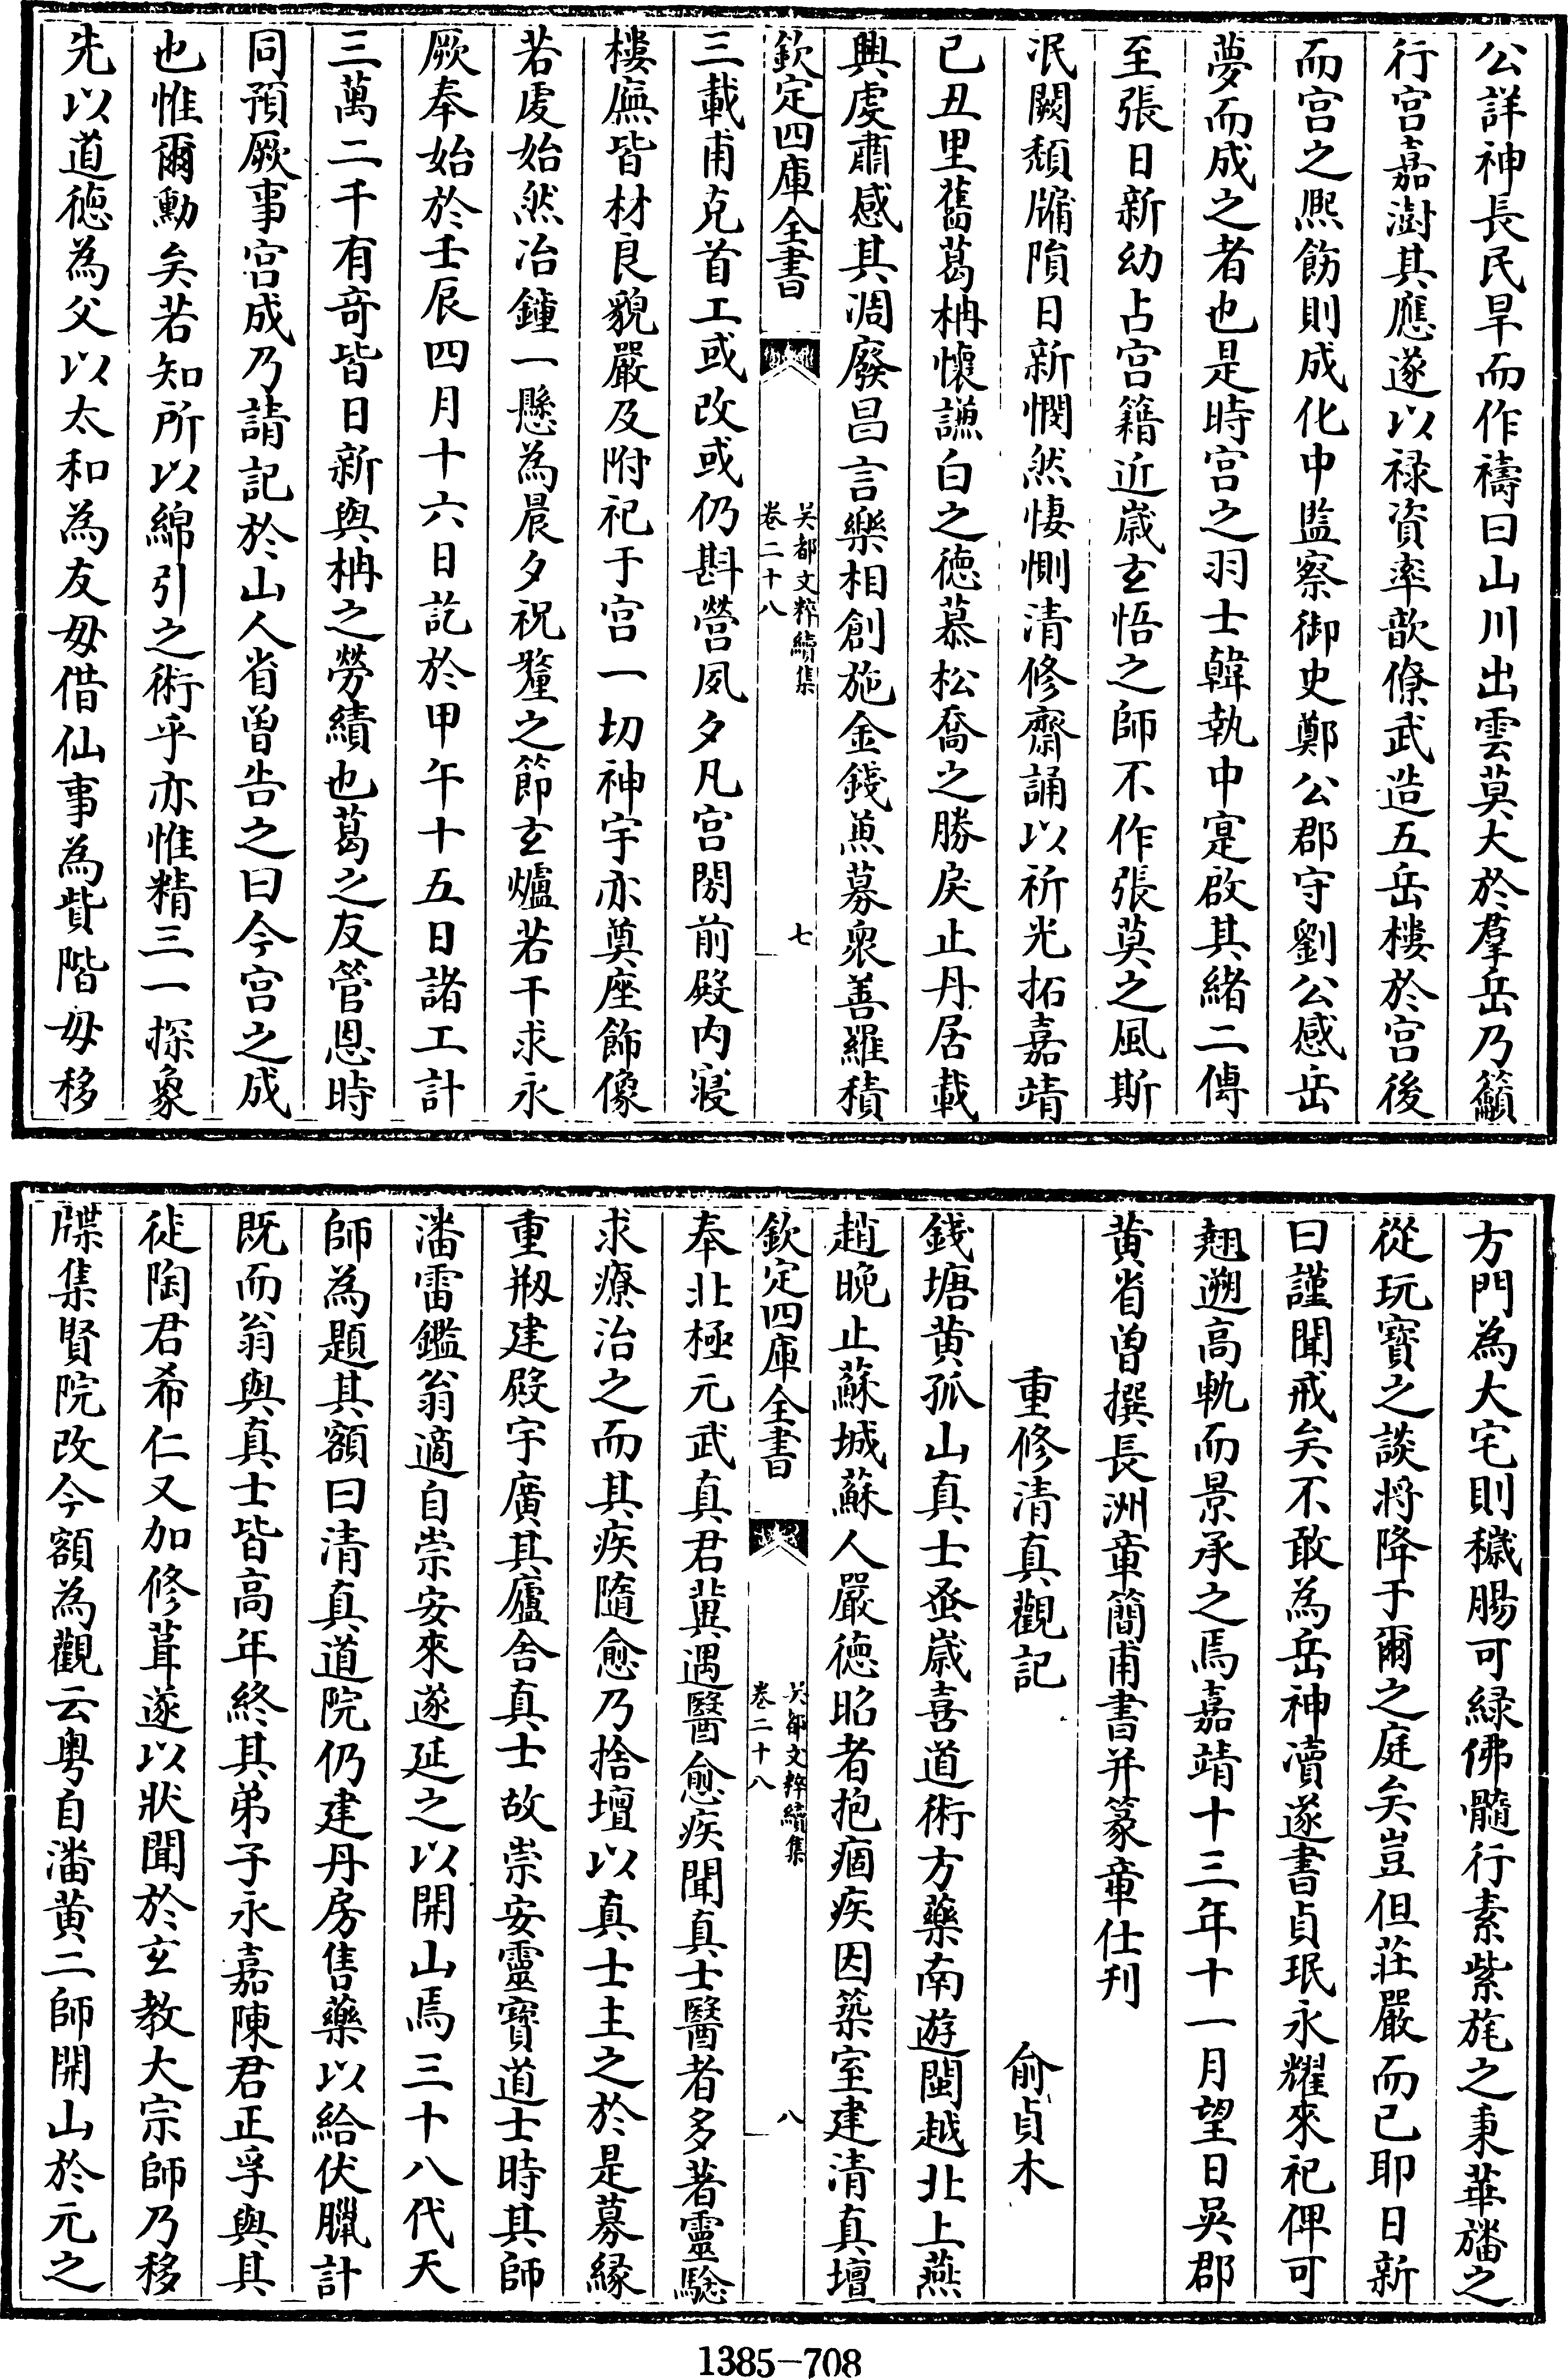 公詳神長民旱而作禱曰山川出雲莫大於羣岳乃籲
行宫嘉澍其應遂以禄資率歆僚武造五岳樓於宫後
而宫之熈飭則成化中監察御史鄭公郡守劉公感岳
夢而成之者也是時宫之羽士韓執中寔啟其緒二傳
至張日新幼占宫籍近嵗玄悟之師不作張莫之風斯
泯闕頽牖隕日新憫然悽惻清修齋誦以祈光拓嘉靖
已丑里舊葛柟懷謙白之徳慕松喬之勝戾止丹居載
興虔肅感其凋廢昌言樂相創施金錢兼募衆善羅積
欽定四庫全書
吴都文粹續集
卷二十八
七
三載甫克首工或改或仍斟營夙夕凡宫閎前殿内寢
樓廡皆材良貌嚴及附祀于宫一切神宇亦奠座飾像
若虔始然冶鍾一懸為晨夕祝釐之節玄爐若干求永
厥奉始於壬辰四月十六日訖於甲午十五日諸工計
三萬二千有竒皆日新與柟之勞績也葛之友管恩時
同預厥事宫成乃請記於山人省曾告之曰今宫之成
也惟爾勳矣若知所以綿引之術乎亦惟精三一探象
先以道徳為父以太和為友毋借仙事為貲階毋移
方門為大宅則穢腸可緑佛髓行素紫旄之秉華旛之
從玩寳之談將降于爾之庭矣豈但莊嚴而已耶日新
曰謹聞戒矣不敢為岳神瀆遂書貞珉永耀來祀俾可
翹遡高軌而景承之焉嘉靖十三年十一月望日吳郡
黄省曾撰長洲章簡甫書并篆章仕刋
重修清真觀記
俞貞木
錢塘黄孤山真士蚤嵗喜道術方藥南遊閩越北上燕
趙晚止蘇城蘇人嚴徳昭者抱痼疾因築室建清真壇
欽定四庫全書
吴都文粹續集
卷二十八
八
奉北極元武真君冀遇醫愈疾聞真士醫者多著靈騐
求療治之而其疾隨愈乃捨壇以真士主之於是募縁
重剏建殿宇廣其廬舍真士故崇安靈寳道士時其師
潘雷鑑翁適自崇安來遂延之以開山焉三十八代天
師為題其額曰清真道院仍建丹房售藥以給伏臘計
既而翁與真士皆高年終其弟子永嘉陳君正孚與其
徒陶君希仁又加修葺遂以狀聞於玄教大宗師乃移
牒集賢院改今額為觀云粤自潘黄二師開山於元之
1385-708